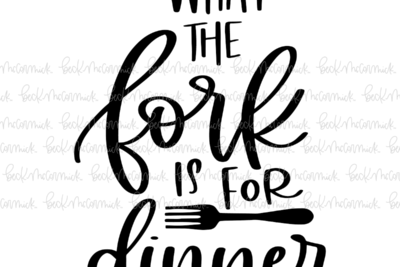 WHAT
THE
fork
IS FOR
dinner